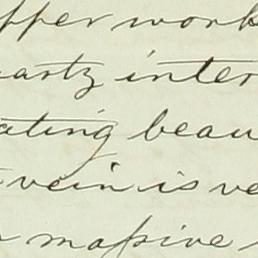 pper work
uartz inter
ating beau
t vein is ve
n massive